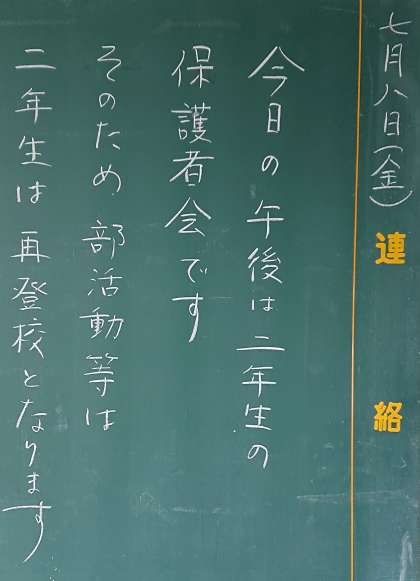 七月八日(金)
連絡
今日の午後は二年生の
保護者会です
そのため部活動等は
二年生は再登校となります